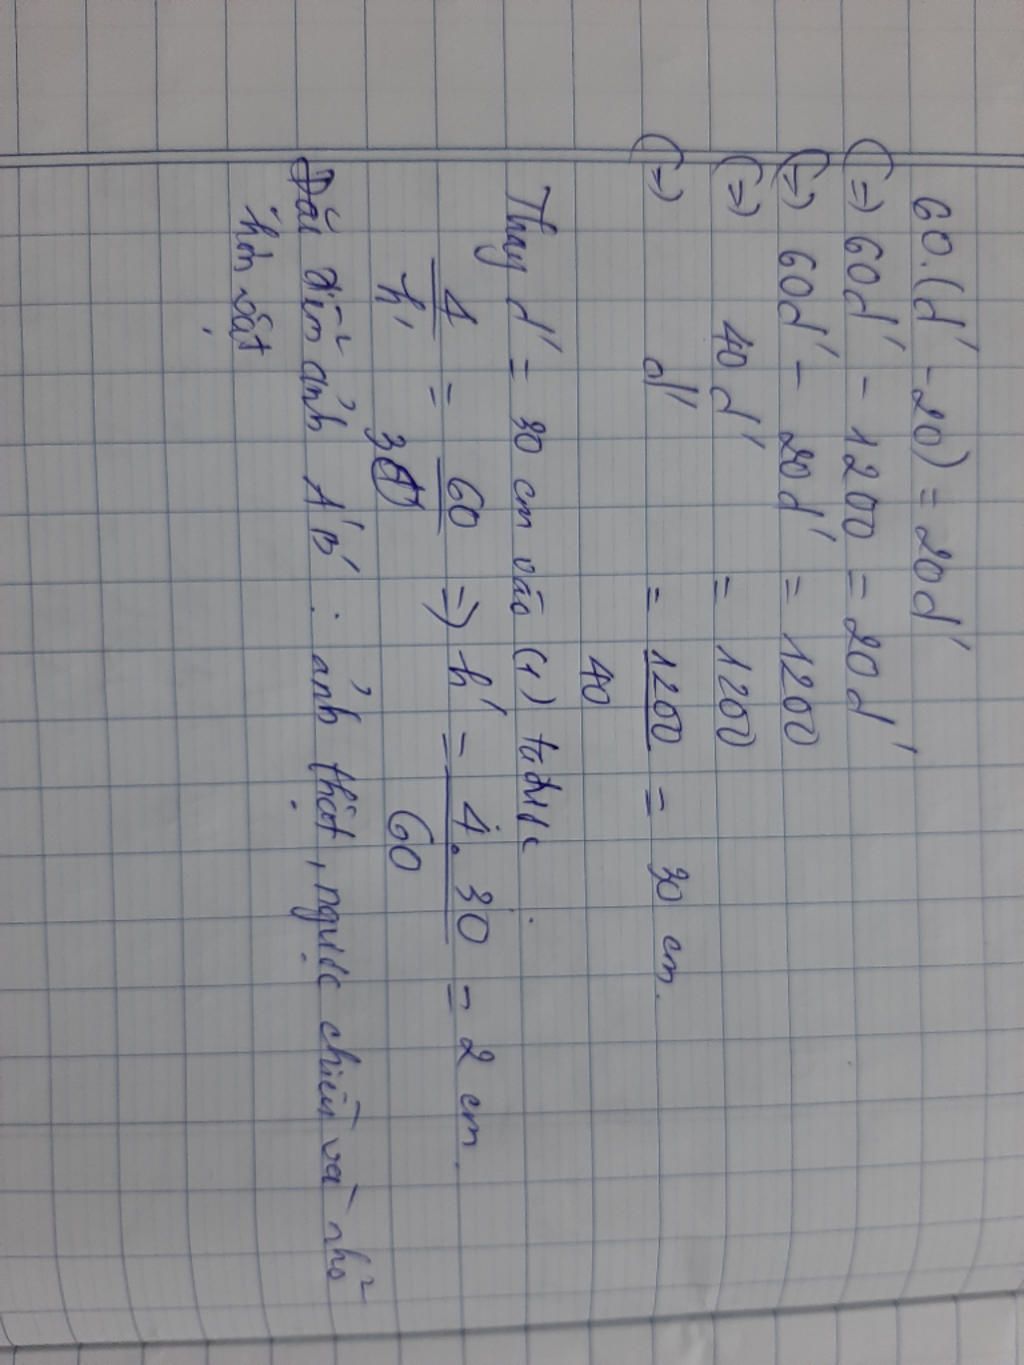 60.(d' - 20) = 20d'
(=) 60d' - 1200 = 20d'
(=) 60d' - 20d' = 1200
(=) 40d' = 1200
(=) d' = 1200/40 = 30 cm.
Thay d' = 30 cm vào (1) ta được
4/h' = 60/30 => h' = 4.30/60 = 2 cm.
Đặc điểm ảnh A'B' : ảnh thật, ngược chiều và nhỏ
hơn vật